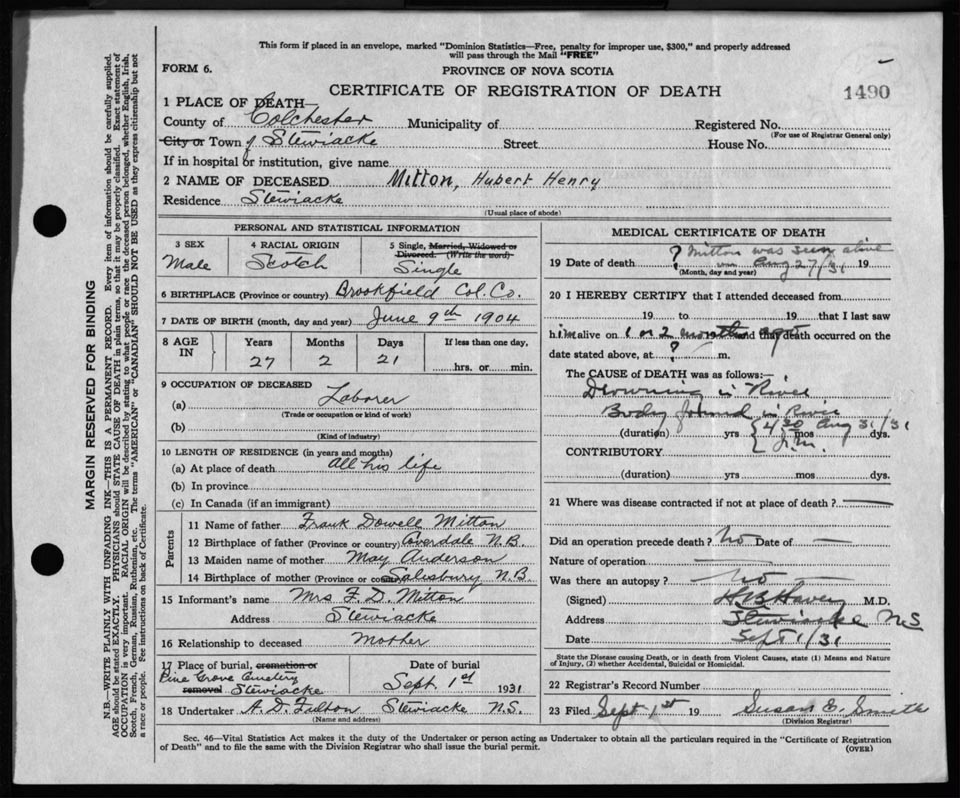 This form if placed in an envelope, marked "Dominion Statistics—Free, penalty for improper use, $300," and properly addressed
will pass through the Mail "FREE"
FORM 6.
PROVINCE OF NOVA SCOTIA
CERTIFICATE OF REGISTRATION OF DEATH
1490
1 PLACE OF DEATH—
County of Colchester Municipality of Registered No.
(For use of Registrar General only)
City or Town of Stewiacke Street House No.
If in hospital or institution, give name
2 NAME OF DECEASED Mitton, Hubert Henry
Residence Stewiacke
(Usual place of abode)
PERSONAL AND STATISTICAL INFORMATION
3 SEX
Male
4 RACIAL ORIGIN
Scotch
5 Single, Married, Widowed or
Divorced. (Write the word)
Single
6 BIRTHPLACE (Province or country) Brookfield Col. Co.
7 DATE OF BIRTH (month, day and year) June 9th 1904
8 AGE IN
Years Months Days If less than one day,
27 2 21 hrs. or min.
9 OCCUPATION OF DECEASED
(a) Laborer
(Trade or occupation or kind of work)
(b)
(Kind of industry)
10 LENGTH OF RESIDENCE (in years and months)
(a) At place of death all his life
(b) In province
(c) In Canada (if an immigrant)
Parents
11 Name of father Frank Dowell Mitton
12 Birthplace of father (Province or country) N.B.
13 Maiden name of mother May Anderson
14 Birthplace of mother (Province or country) Salisbury N.B
15 Informant's name Mrs F. D. Mitton
Address Stewiacke
16 Relationship to deceased Mother
17 Place of burial, cremation or
removal Pine Grove Cemetery
Stewiacke
Date of burial
Sept. 1st 1931
18 Undertaker A. D. Fulton Stewiacke N.S.
(Name and address)
MEDICAL CERTIFICATE OF DEATH
19 Date of death ? Mitton was seen alive
on Aug 27/31 19
(Month, day and year)
20 I HEREBY CERTIFY that I attended deceased from
19 to 19 that I last saw
him alive on 1 or 2 months ago 19 and that death occurred on the
date stated above, at ? m.
The CAUSE of DEATH was as follows:—
Drowning in River
Body found in River
(duration) yrs mos dys.
4 30 Aug 31/31
CONTRIBUTORY
(duration) yrs mos dys.
21 Where was disease contracted if not at place of death? —
Did an operation precede death? No Date of —
Nature of operation —
Was there an autopsy? No —
(Signed) M.D.
Address Stewiacke NS
Date Sept 1/31
State the Disease causing Death, or in death from Violent Causes, state (1) Means and Nature
of Injury, (2) whether Accidental, Suicidal or Homicidal.
22 Registrar's Record Number
23 Filed Sept 1st 19 Susan E. Smith
(Division Registrar)
Sec. 46—Vital Statistics Act makes it the duty of the Undertaker or person acting as Undertaker to obtain all the particulars required in the "Certificate of Registration
of Death" and to file the same with the Division Registrar who shall issue the burial permit.
(OVER)
MARGIN RESERVED FOR BINDING
N.B.—WRITE PLAINLY WITH UNFADING INK—THIS IS A PERMANENT RECORD. Every item of information should be carefully supplied.
AGE should be stated EXACTLY. PHYSICIANS should STATE CAUSE OF DEATH in plain terms, so that it may be properly classified. Exact statement of
OCCUPATION is very important. RACIAL ORIGIN will be described by stating to what people or race the deceased person belonged, whether English, Irish,
Scotch, French, German, Russian, Ruthenian, etc. The terms "AMERICAN" or "CANADIAN" SHOULD NOT BE USED as they express citizenship but not
a race or people. Fee instructions on back of Certificate.